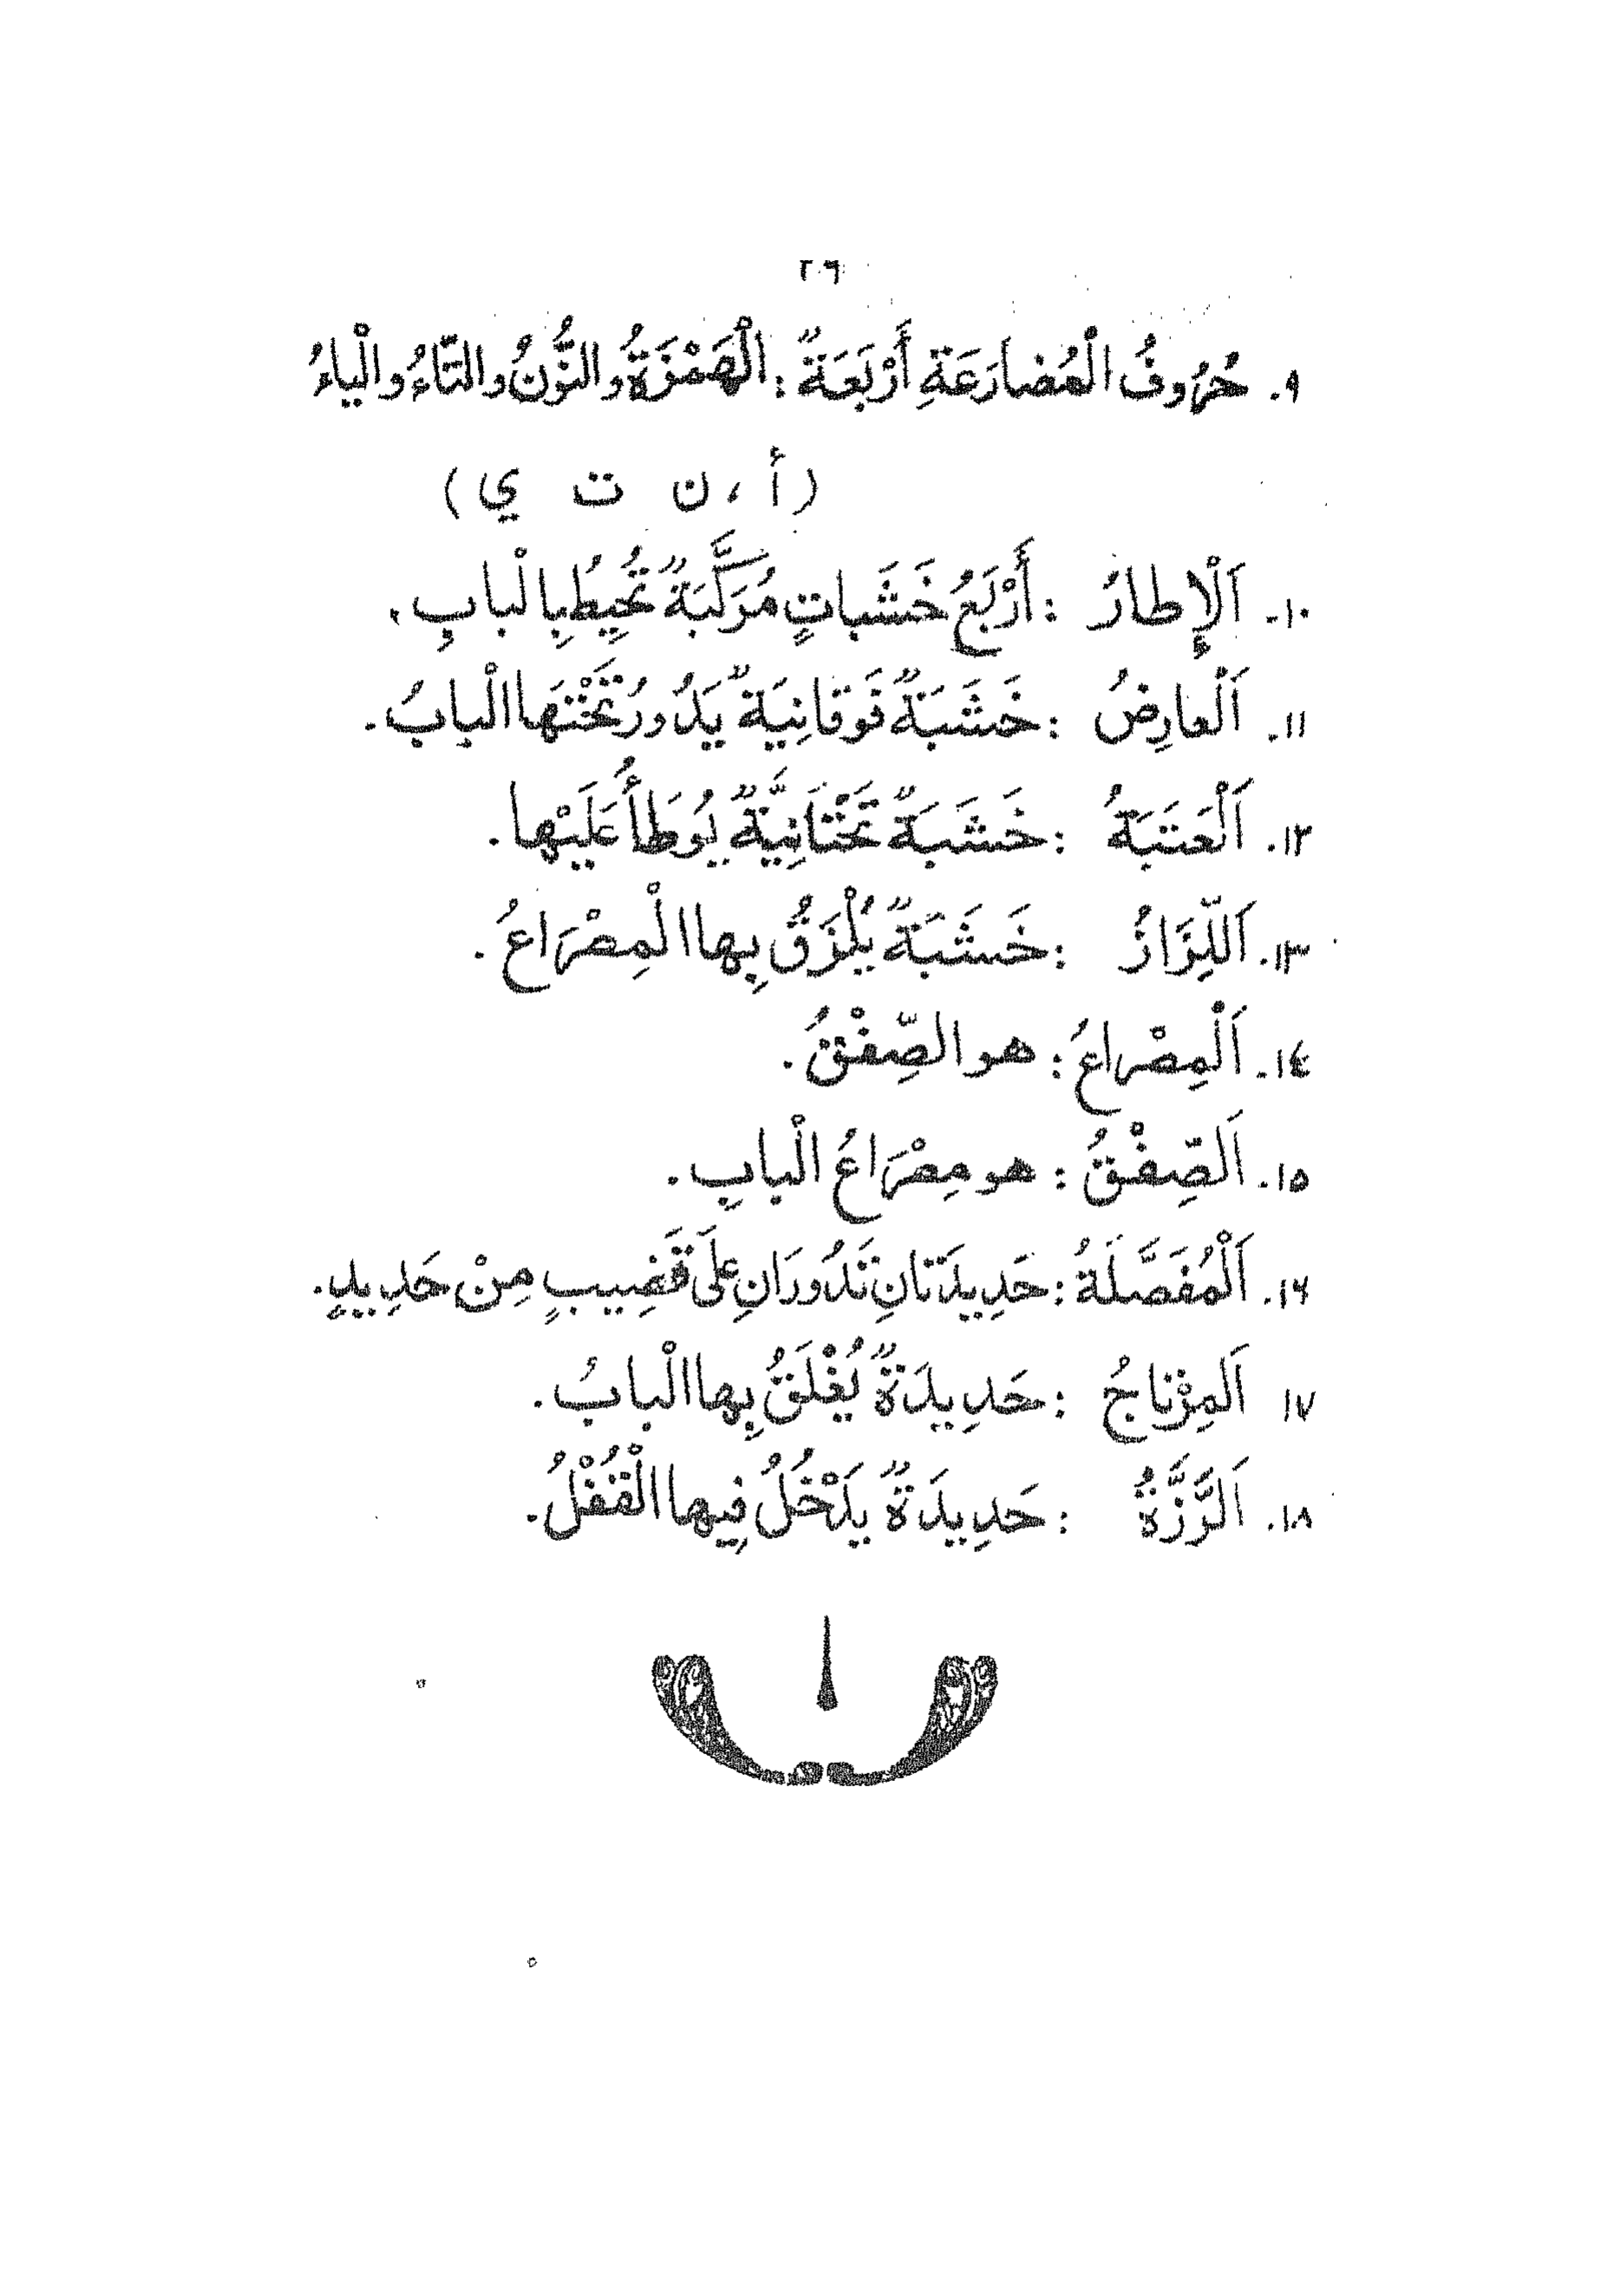 ٢٩
٩. حُرُوفُ الْمُضارَعَةِ أَرْبَعَةٌ : الْهَمْزَةُ والنُّونُ والتّاءُ والْياءُ
(أ ، ن ت ي)
١٠- اَلْإِطارُ : أَرْبَعُ خَشَباتٍ مُرَكَّبَةٌ تُحِيطُ بِالْبابِ .
١١- اَلْعارِضُ : خَشَبَةٌ فَوقانِيَةٌ يَدُورُ تَحْتَهَا الْبابُ .
١٢. اَلْعَتَبَةُ : خَشَبَةٌ تَحْتَانِيَّةٌ يُوَطَأُ عَلَيْها .
١٣. اَللِّزَازُ : خَشَبَةٌ يُلْزَقُ بِها الْمِصْرَاعُ .
١٤- اَلْمِصْراعُ : هو الصِّفْقُ .
١٥. اَلصِّفْقُ : هو مِصْرَاعُ الْبابِ .
١٦. اَلْمُفَصَّلَةُ : حَدِيدَتانِ تَدُورَانِ عَلَى قَضِيبٍ مِنْ حَدِيدٍ .
١٧ اَلمِرْتاجُ : حَدِيدَةٌ يُغْلَقُ بِها الْبابُ .
١٨. اَلرَّزَّةُ : حَدِيدَةٌ يَدْخُلُ فِيها الْقُفْلُ .